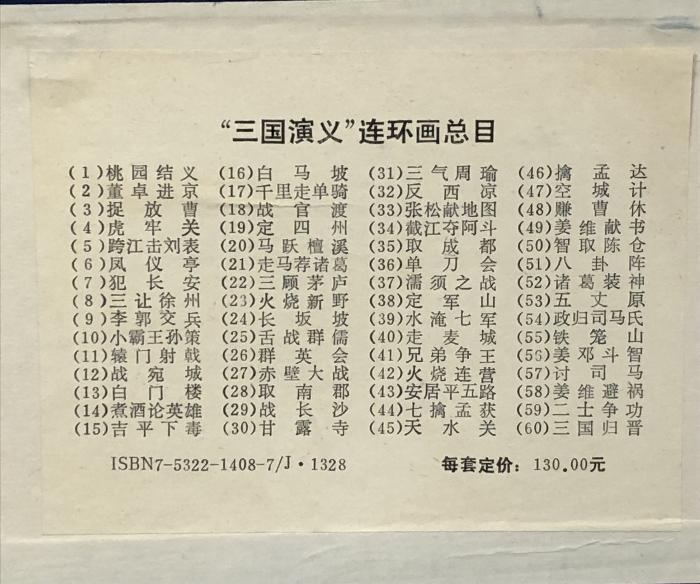 “三国演义”连环画总目
(1)桃园结义 (16)白马坡 (31)三气周瑜 (46)擒孟达
(2)董卓进京 (17)千里走单骑 (32)反西凉 (47)空城计
(3)捉放曹 (18)战官渡 (33)张松献地图 (48)赚曹休
(4)虎牢关 (19)定四州 (34)截江夺阿斗 (49)姜维献书
(5)跨江击刘表 (20)马跃檀溪 (35)取成都 (50)智取陈仓
(6)凤仪亭 (21)走马荐诸葛 (36)单刀会 (51)八卦阵
(7)犯长安 (22)三顾茅庐 (37)濡须之战 (52)诸葛装神
(8)三让徐州 (23)火烧新野 (38)定军山 (53)五丈原
(9)李郭交兵 (24)长坂坡 (39)水淹七军 (54)政归司马氏
(10)小霸王孙策 (25)舌战群儒 (40)走麦城 (55)铁笼山
(11)辕门射戟 (26)群英会 (41)兄弟争王 (56)姜邓斗智
(12)战宛城 (27)赤壁大战 (42)火烧连营 (57)讨司马
(13)白门楼 (28)取南郡 (43)安居平五路 (58)姜维避祸
(14)煮酒论英雄 (29)战长沙 (44)七擒孟获 (59)二士争功
(15)吉平下毒 (30)甘露寺 (45)天水关 (60)三国归晋
ISBN7-5322-1408-7/J·1328 每套定价：130.00元